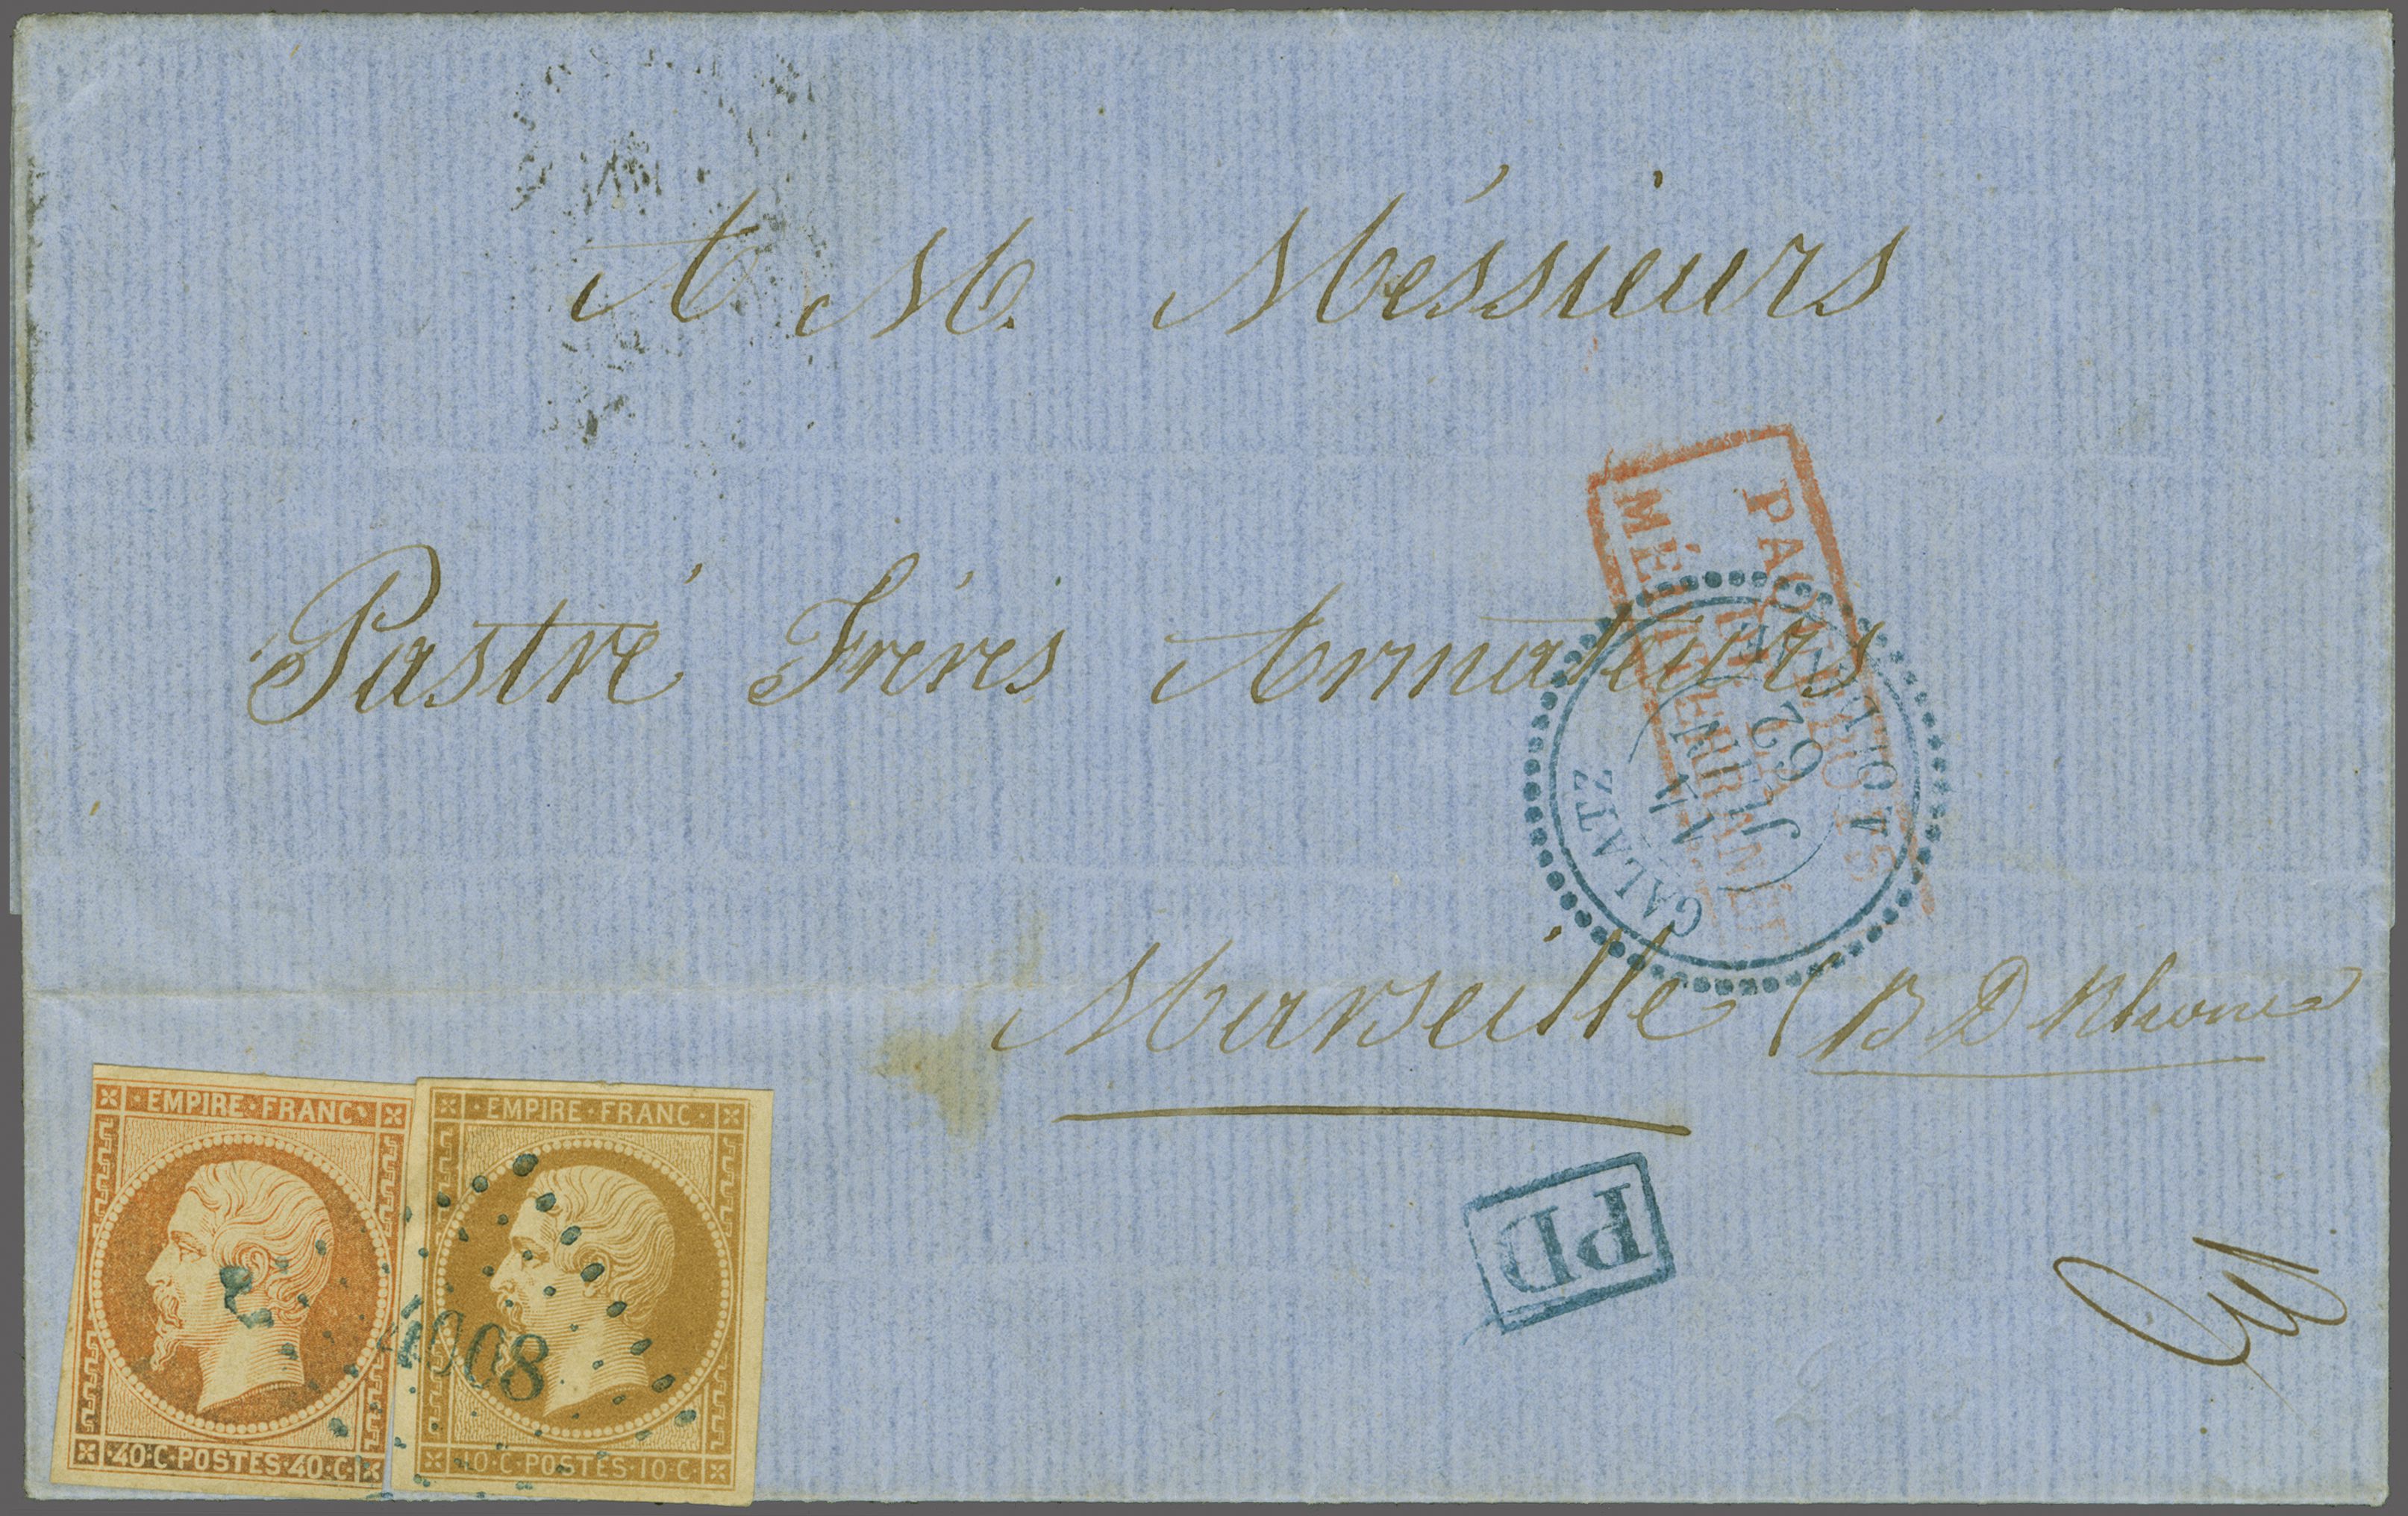 A M. Méssieurs
Pastré Fréres Armateurs
Marseille (B D Rhone)
PAQUEBOTS
DE LA
MÉDITERRANÉE
GALATZ
14
JUIN
62
MOLDAVIE
PD
EMPIRE·FRANC·
·40·C·POSTES·40·C·
EMPIRE·FRANC·
10·C·POSTES·10·C·
4008